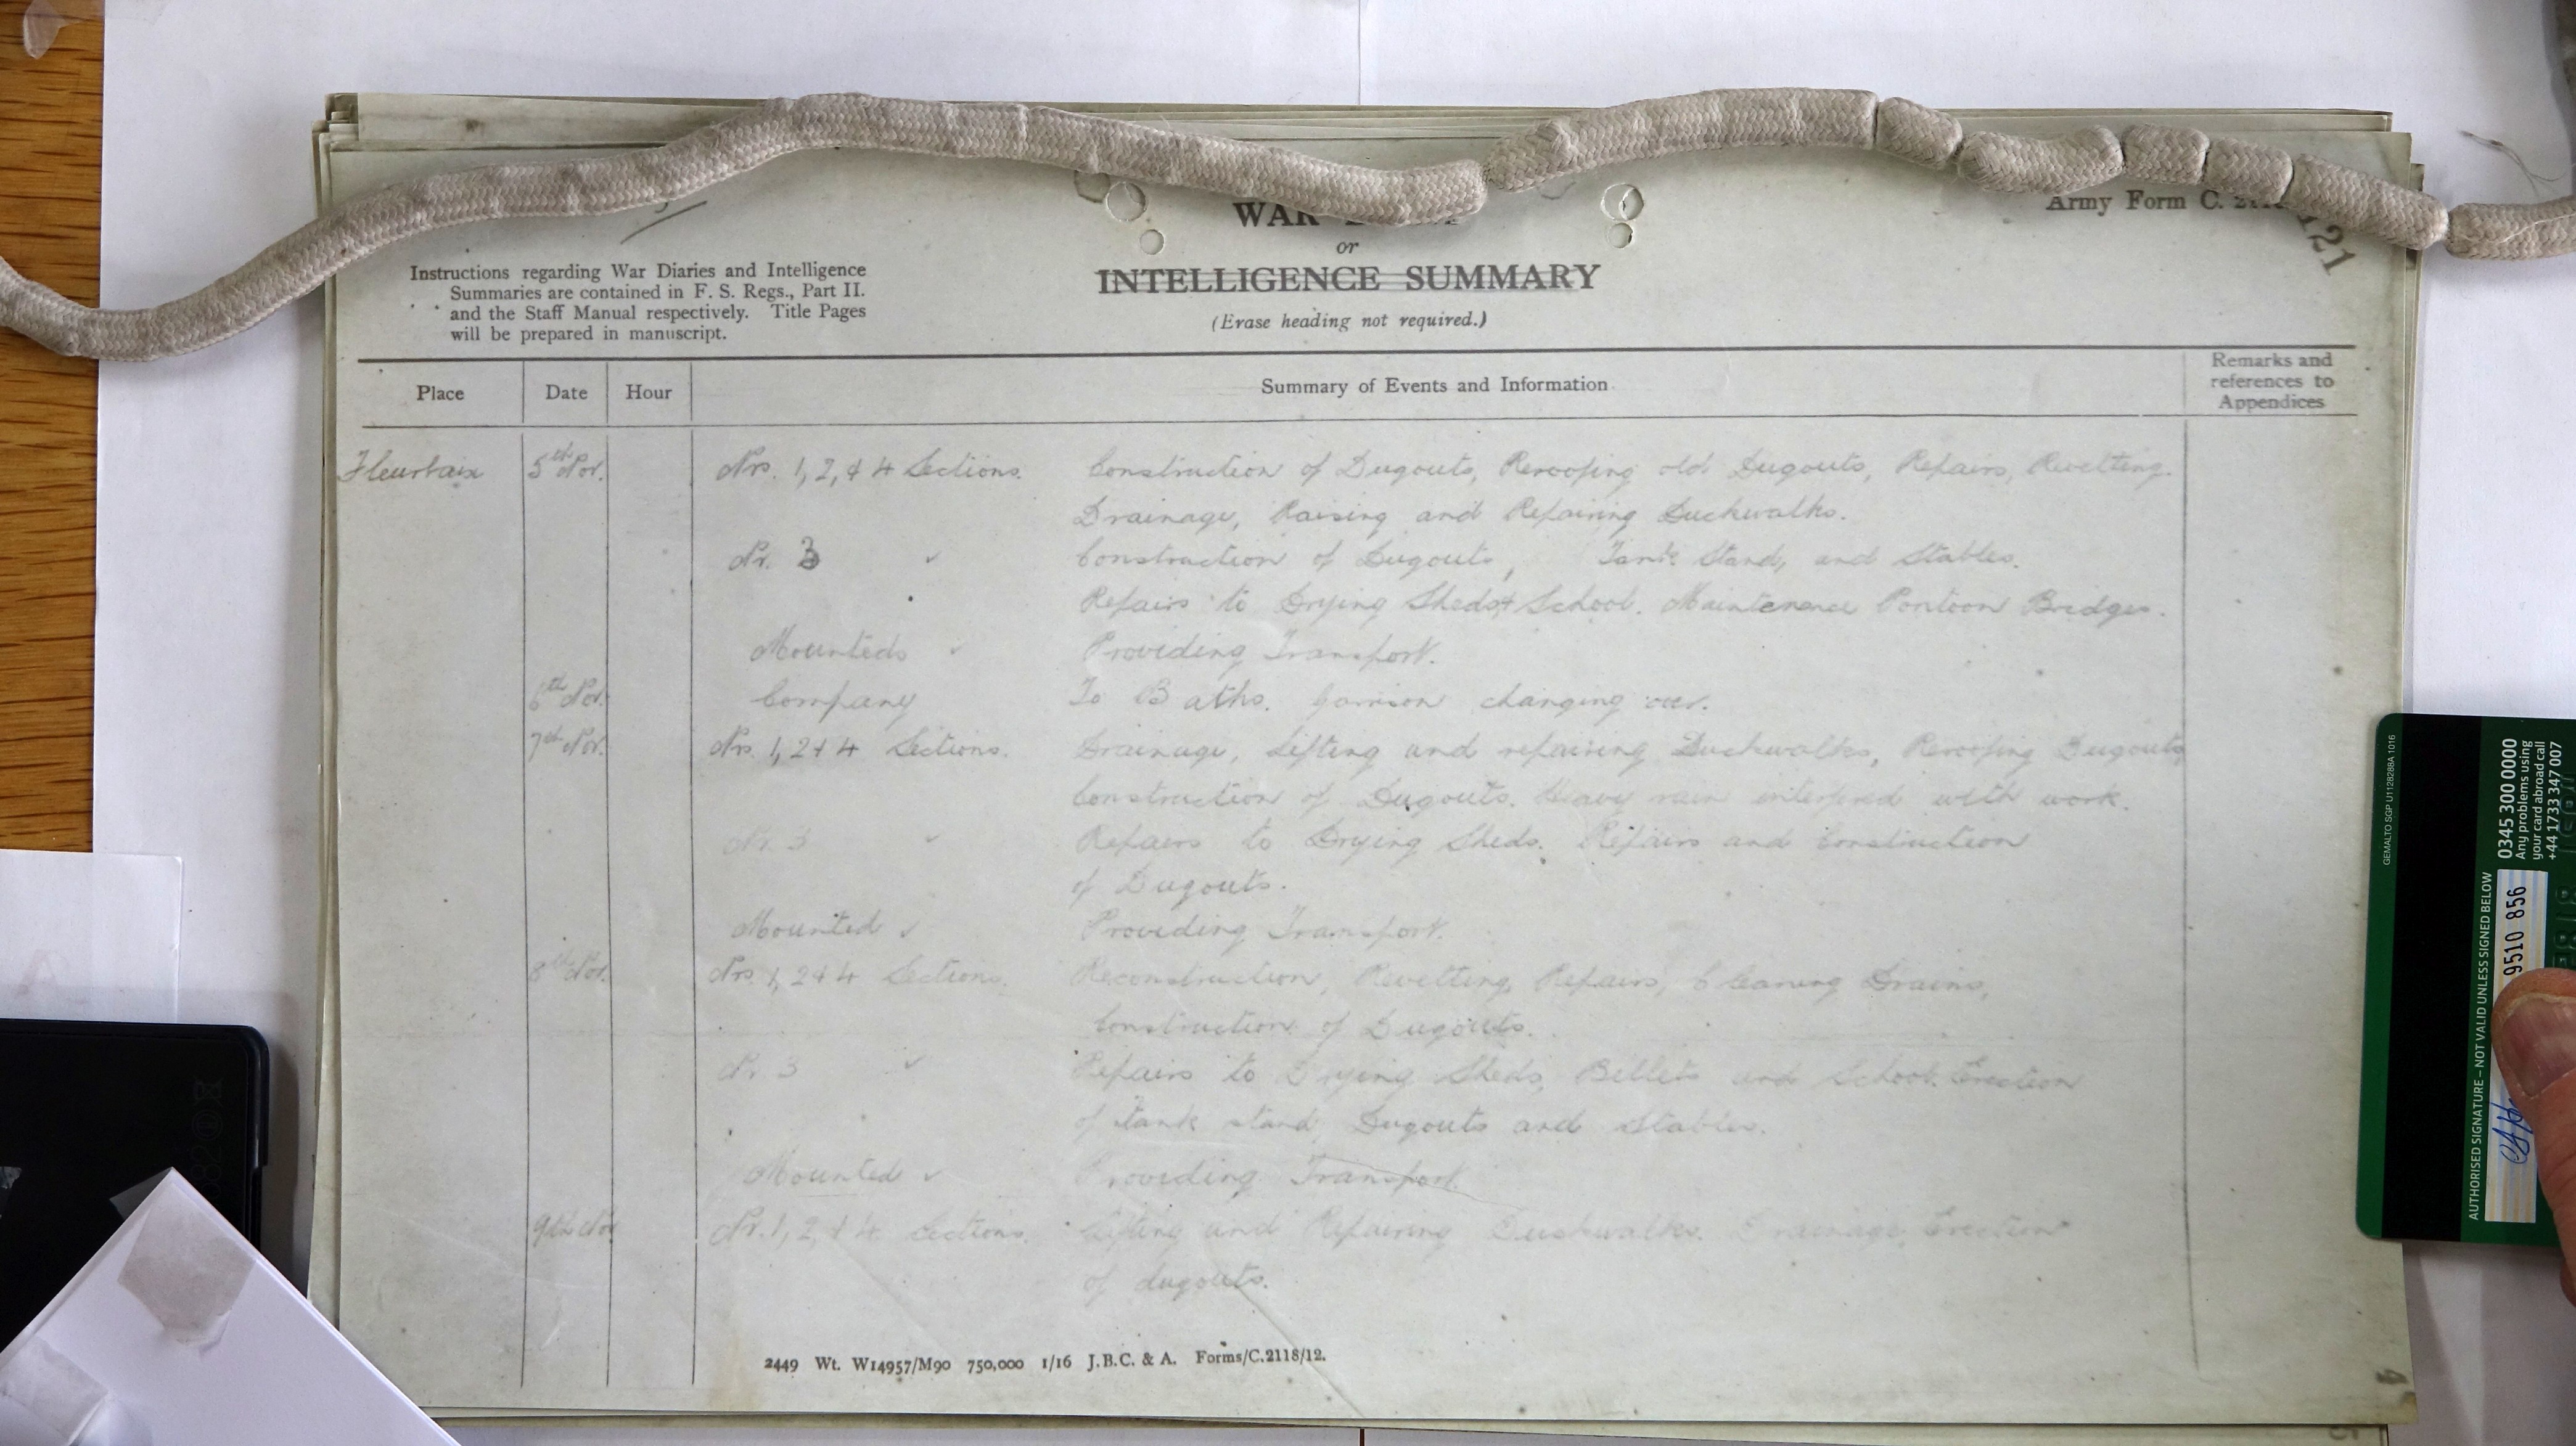 WAR
Army Form C.
121
or
INTELLIGENCE SUMMARY
(Erase heading not required.)
Instructions regarding War Diaries and Intelligence
Summaries are contained in F. S. Regs., Part II.
and the Staff Manual respectively. Title Pages
will be prepared in manuscript.
Place Date Hour Summary of Events and Information Remarks and
references to
Appendices
Fleurbaix 5th Nov. Nrs. 1, 2, & 4 Sections. Construction of Dugouts, Reroofing old Dugouts, Repairs, Revetting.
Drainage, Raising and Repairing Duckwalks.
Nr. 3 " Construction of Dugouts, Tank Stand, and Stables.
Repairs to Drying Sheds & School. Maintenance Pontoon Bridges.
Mounteds " Providing Transport.
6th Nov. Company To Baths. Garrison changing over.
7th Nov. Nrs. 1, 2 & 4 Sections. Drainage, Lifting and repairing Duckwalks, Reroofing Dugouts
Construction of Dugouts. Heavy rain interfered with work.
Nr. 3 " Repairs to Drying Sheds. Repairs and construction
of Dugouts.
Mounted " Providing Transport.
8th Nov. Nrs. 1, 2 & 4 Sections. Reconstruction, Revetting, Repairs, Cleaning Drains,
Construction of Dugouts.
Nr. 3 " Repairs to Drying Sheds, Billets and School. Erection
of Tank stand, Dugouts and Stables.
Mounted " Providing Transport.
9th Nov Nr. 1, 2, & 4 Sections. Lifting and Repairing Duckwalks. Drainage, Erection
of dugouts.
2449 Wt. W14957/M90 750,000 1/16 J.B.C. & A. Forms/C.2118/12.
GEMALTO SGP U1128288A 1016
0345 300 0000
Any problems using
your card abroad call
+44 1733 347 007
AUTHORISED SIGNATURE – NOT VALID UNLESS SIGNED BELOW
9510 856